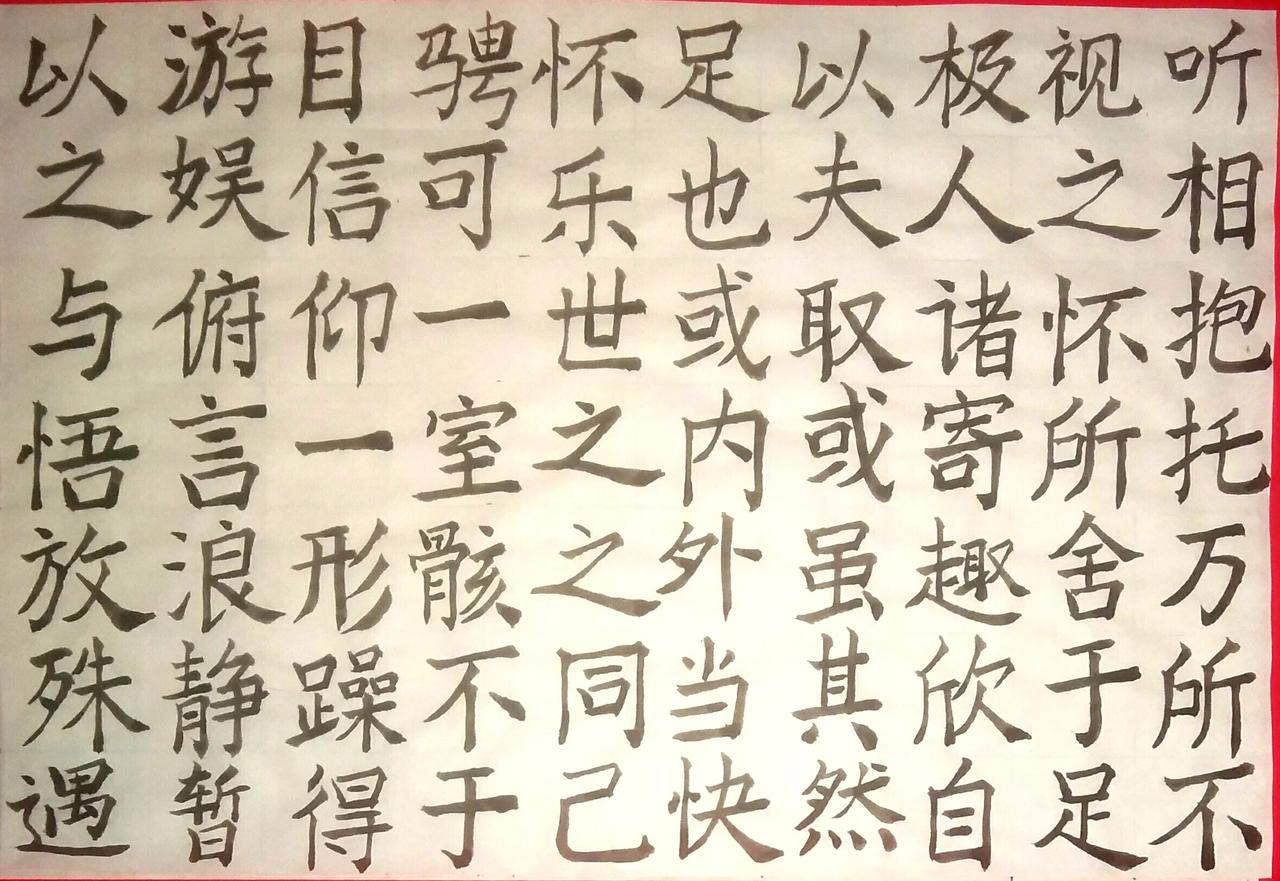 以游目骋怀足以极视听
之娱信可乐也夫人之相
与俯仰一世或取诸怀抱
悟言一室之内或寄所托
放浪形骸之外虽趣舍万
殊静躁不同当其欣于所
遇暂得于己快然自足不